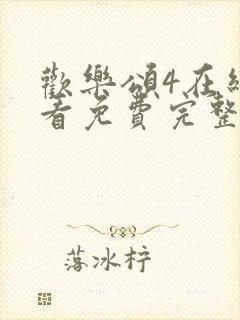 歡樂頌4在線
看免費完整
落冰梓